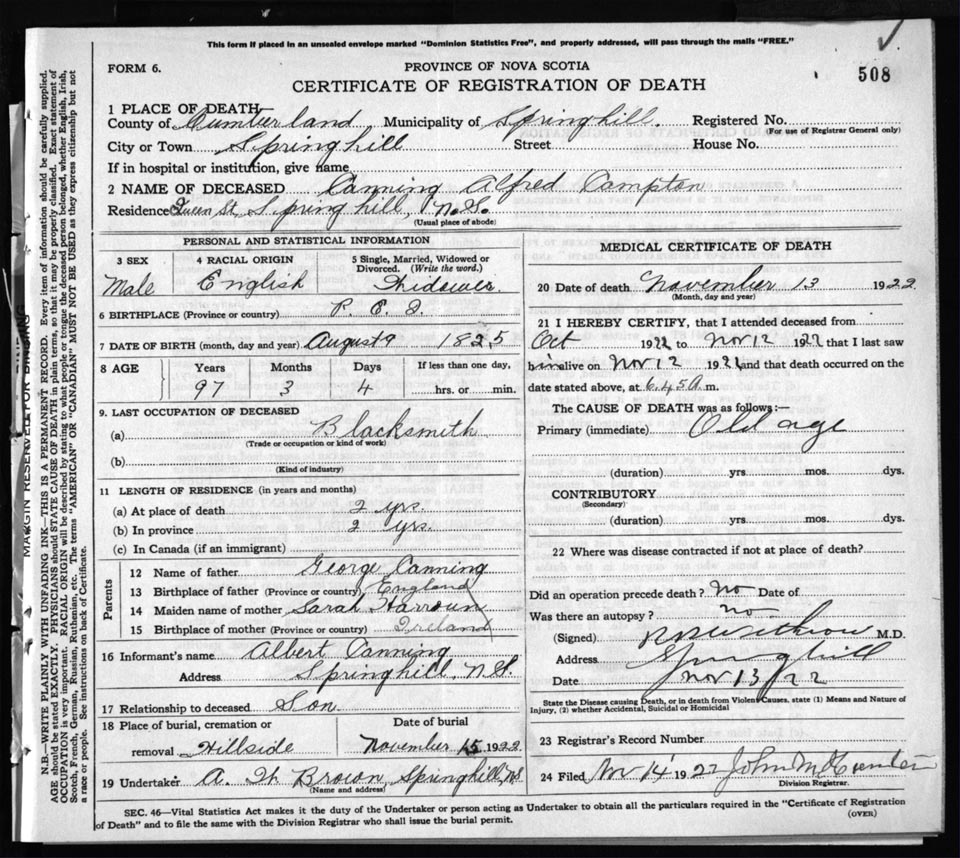 This form if placed in an unsealed envelope marked "Dominion Statistics Free", and properly addressed, will pass through the mails "FREE."
FORM 6.
PROVINCE OF NOVA SCOTIA
508
CERTIFICATE OF REGISTRATION OF DEATH
1 PLACE OF DEATH
County of Cumberland Municipality of Springhill. Registered No.
(For use of Registrar General only)
City or Town Springhill Street House No.
If in hospital or institution, give name
2 NAME OF DECEASED Canning Alfred Campton
Residence Queen St, Springhill, N.S.
(Usual place of abode)
PERSONAL AND STATISTICAL INFORMATION
3 SEX 4 RACIAL ORIGIN 5 Single, Married, Widowed or Divorced. (Write the word.)
Male English Widower
6 BIRTHPLACE (Province or country) P. E. I.
7 DATE OF BIRTH (month, day and year) August 9 1825
8 AGE Years Months Days If less than one day,
97 3 4 hrs. or min.
9. LAST OCCUPATION OF DECEASED
(a) Blacksmith
(Trade or occupation or kind of work)
(b)
(Kind of industry)
11 LENGTH OF RESIDENCE (in years and months)
(a) At place of death 2 yrs.
(b) In province 2 yrs.
(c) In Canada (if an immigrant)
Parents
12 Name of father George Canning
13 Birthplace of father (Province or country) England
14 Maiden name of mother Sarah Harroun
15 Birthplace of mother (Province or country) Ireland
16 Informant's name Albert Canning
Address Springhill, N.S.
17 Relationship to deceased Son
18 Place of burial, cremation or Date of burial
removal Hillside November 15 1922
19 Undertaker A. H. Brown, Springhill, N.S.
(Name and address)
MEDICAL CERTIFICATE OF DEATH
20 Date of death November 13 1922
(Month, day and year)
21 I HEREBY CERTIFY, that I attended deceased from
Oct 1922 to Nov 12 1922 that I last saw
him alive on Nov 12 1922 and that death occurred on the
date stated above, at 6.45 A m.
The CAUSE OF DEATH was as follows:-
Primary (immediate) Old age
(duration) yrs. mos. dys.
CONTRIBUTORY
(Secondary)
(duration) yrs. mos. dys.
22 Where was disease contracted if not at place of death?
Did an operation precede death? No Date of
Was there an autopsy? no
(Signed) Withrow M.D.
Address Springhill
Date Nov 13/22
State the Disease causing Death, or in death from Violent Causes, state (1) Means and Nature of Injury, (2) whether Accidental, Suicidal or Homicidal
23 Registrar's Record Number
24 Filed Nov 14 1922 John
Division Registrar.
SEC. 46—Vital Statistics Act makes it the duty of the Undertaker or person acting as Undertaker to obtain all the particulars required in the "Certificate of Registration
of Death" and to file the same with the Division Registrar who shall issue the burial permit.
(OVER)
MARGIN RESERVED FOR BINDING
N.B.—WRITE PLAINLY WITH UNFADING INK—THIS IS A PERMANENT RECORD. Every item of information should be carefully supplied.
AGE should be stated EXACTLY. PHYSICIANS should STATE CAUSE OF DEATH in plain terms, so that it may be properly classified. Exact statement of
OCCUPATION is very important. RACIAL ORIGIN will be described by stating to what people or tongue the deceased person belonged, whether English, Irish,
Scotch, French, German, Russian, Ruthenian, etc. The terms "AMERICAN" OR "CANADIAN" MUST NOT BE USED as they express citizenship but not
a race or people. See instructions on back of Certificate.